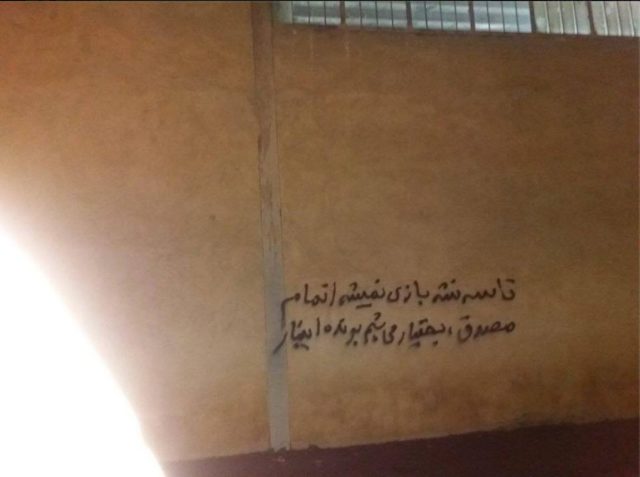 تا سه نشه بازی نمیشه اتمام
مصدق ، بختیار می شیم برنده اینبار